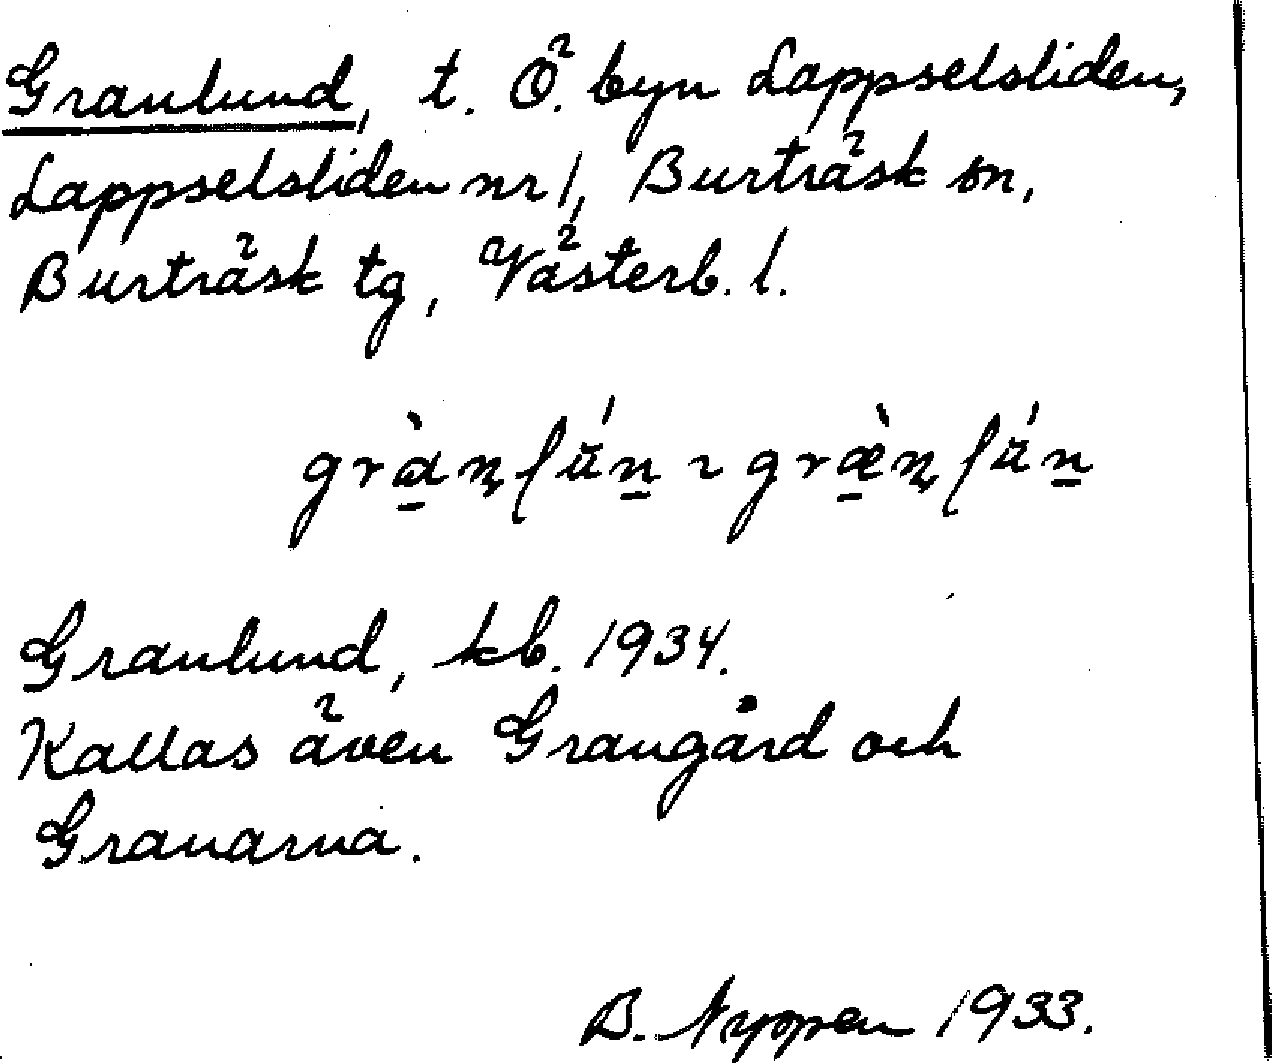 Granlund, t. Ö. byn Lappselsliden,
Lappselsliden nr 1, Burträsk sn,
Burträsk tg, Västerb. l.
Granlund, kb. 1934.
Kallas även Grangård och
Granarna.
B. Nyppen 1933.